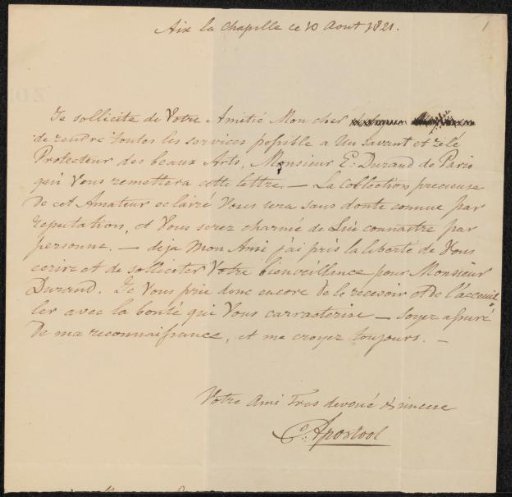 1
Aix la Chapelle ce 10 Aout 1821.
Je sollicite de Votre Amitié Mon cher
de rendre toutes les services possible a Un savant et zelé
Protecteur des beaux Arts, Monsieur E. Durand de Paris
qui Vous remettera cette lettre. — La Collection precieuse
de cet Amateur eclairé Vous sera sans doute connue par
reputation, et Vous serez charmé de Lui connaitre par
personne. — deja Mon Ami j'ai pris la liberté de Vous
ecrire et de solliciter Votre bienveillence pour Monsieur
Durand. Je Vous prie donc encore de le recevoir et de l'acceuil
ler avec la bonté qui Vous carracterise — Soyez assuré
de ma reconnaissance, et me croyez toujours. —
Votre Ami Tres devoué & sincere
C. Apostool